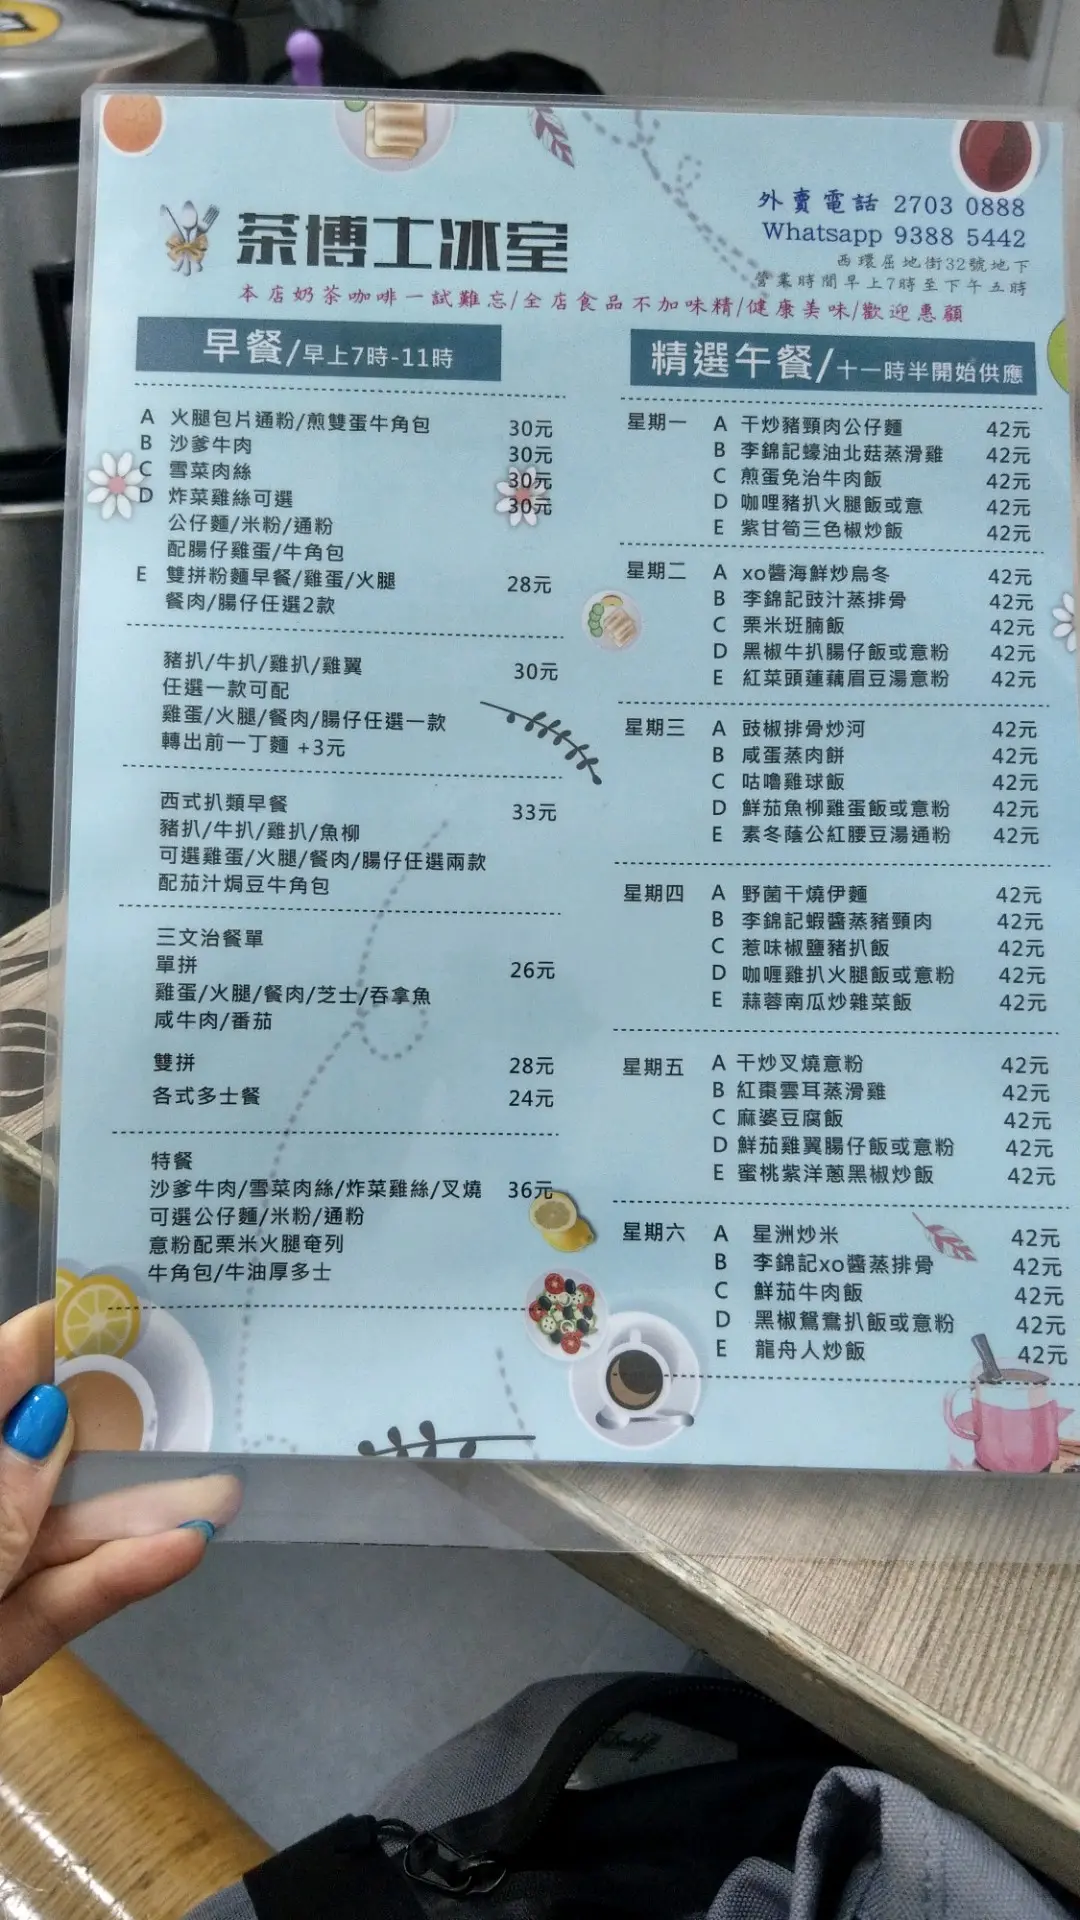 茶博士冰室
外賣電話 2703 0888
Whatsapp 9388 5442
西環屈地街32號地下
營業時間早上7時至下午五時
本店奶茶咖啡一試難忘/全店食品不加味精/健康美味/歡迎惠顧
早餐/早上7時-11時
A 火腿包片通粉/煎雙蛋牛角包 30元
B 沙爹牛肉 30元
C 雪菜肉絲 30元
D 炸菜雞絲可選 30元
公仔麵/米粉/通粉
配腸仔雞蛋/牛角包
E 雙拼粉麵早餐/雞蛋/火腿 28元
餐肉/腸仔任選2款
豬扒/牛扒/雞扒/雞翼 30元
任選一款可配
雞蛋/火腿/餐肉/腸仔任選一款
轉出前一丁麵 +3元
西式扒類早餐 33元
豬扒/牛扒/雞扒/魚柳
可選雞蛋/火腿/餐肉/腸仔任選兩款
配茄汁焗豆牛角包
三文治餐單
單拼 26元
雞蛋/火腿/餐肉/芝士/吞拿魚
咸牛肉/番茄
雙拼 28元
各式多士餐 24元
特餐
沙爹牛肉/雪菜肉絲/炸菜雞絲/叉燒 36元
可選公仔麵/米粉/通粉
意粉配栗米火腿奄列
牛角包/牛油厚多士
精選午餐/十一時半開始供應
星期一 A 干炒豬頸肉公仔麵 42元
B 李錦記蠔油北菇蒸滑雞 42元
C 煎蛋免治牛肉飯 42元
D 咖哩豬扒火腿飯或意 42元
E 紫甘筍三色椒炒飯 42元
星期二 A xo醬海鮮炒烏冬 42元
B 李錦記豉汁蒸排骨 42元
C 栗米班腩飯 42元
D 黑椒牛扒腸仔飯或意粉 42元
E 紅菜頭蓮藕眉豆湯意粉 42元
星期三 A 豉椒排骨炒河 42元
B 咸蛋蒸肉餅 42元
C 咕嚕雞球飯 42元
D 鮮茄魚柳雞蛋飯或意粉 42元
E 素冬蔭公紅腰豆湯通粉 42元
星期四 A 野菌干燒伊麵 42元
B 李錦記蝦醬蒸豬頸肉 42元
C 惹味椒鹽豬扒飯 42元
D 咖喱雞扒火腿飯或意粉 42元
E 蒜蓉南瓜炒雜菜飯 42元
星期五 A 干炒叉燒意粉 42元
B 紅棗雲耳蒸滑雞 42元
C 麻婆豆腐飯 42元
D 鮮茄雞翼腸仔飯或意粉 42元
E 蜜桃紫洋蔥黑椒炒飯 42元
星期六 A 星洲炒米 42元
B 李錦記xo醬蒸排骨 42元
C 鮮茄牛肉飯 42元
D 黑椒鴛鴦扒飯或意粉 42元
E 龍舟人炒飯 42元